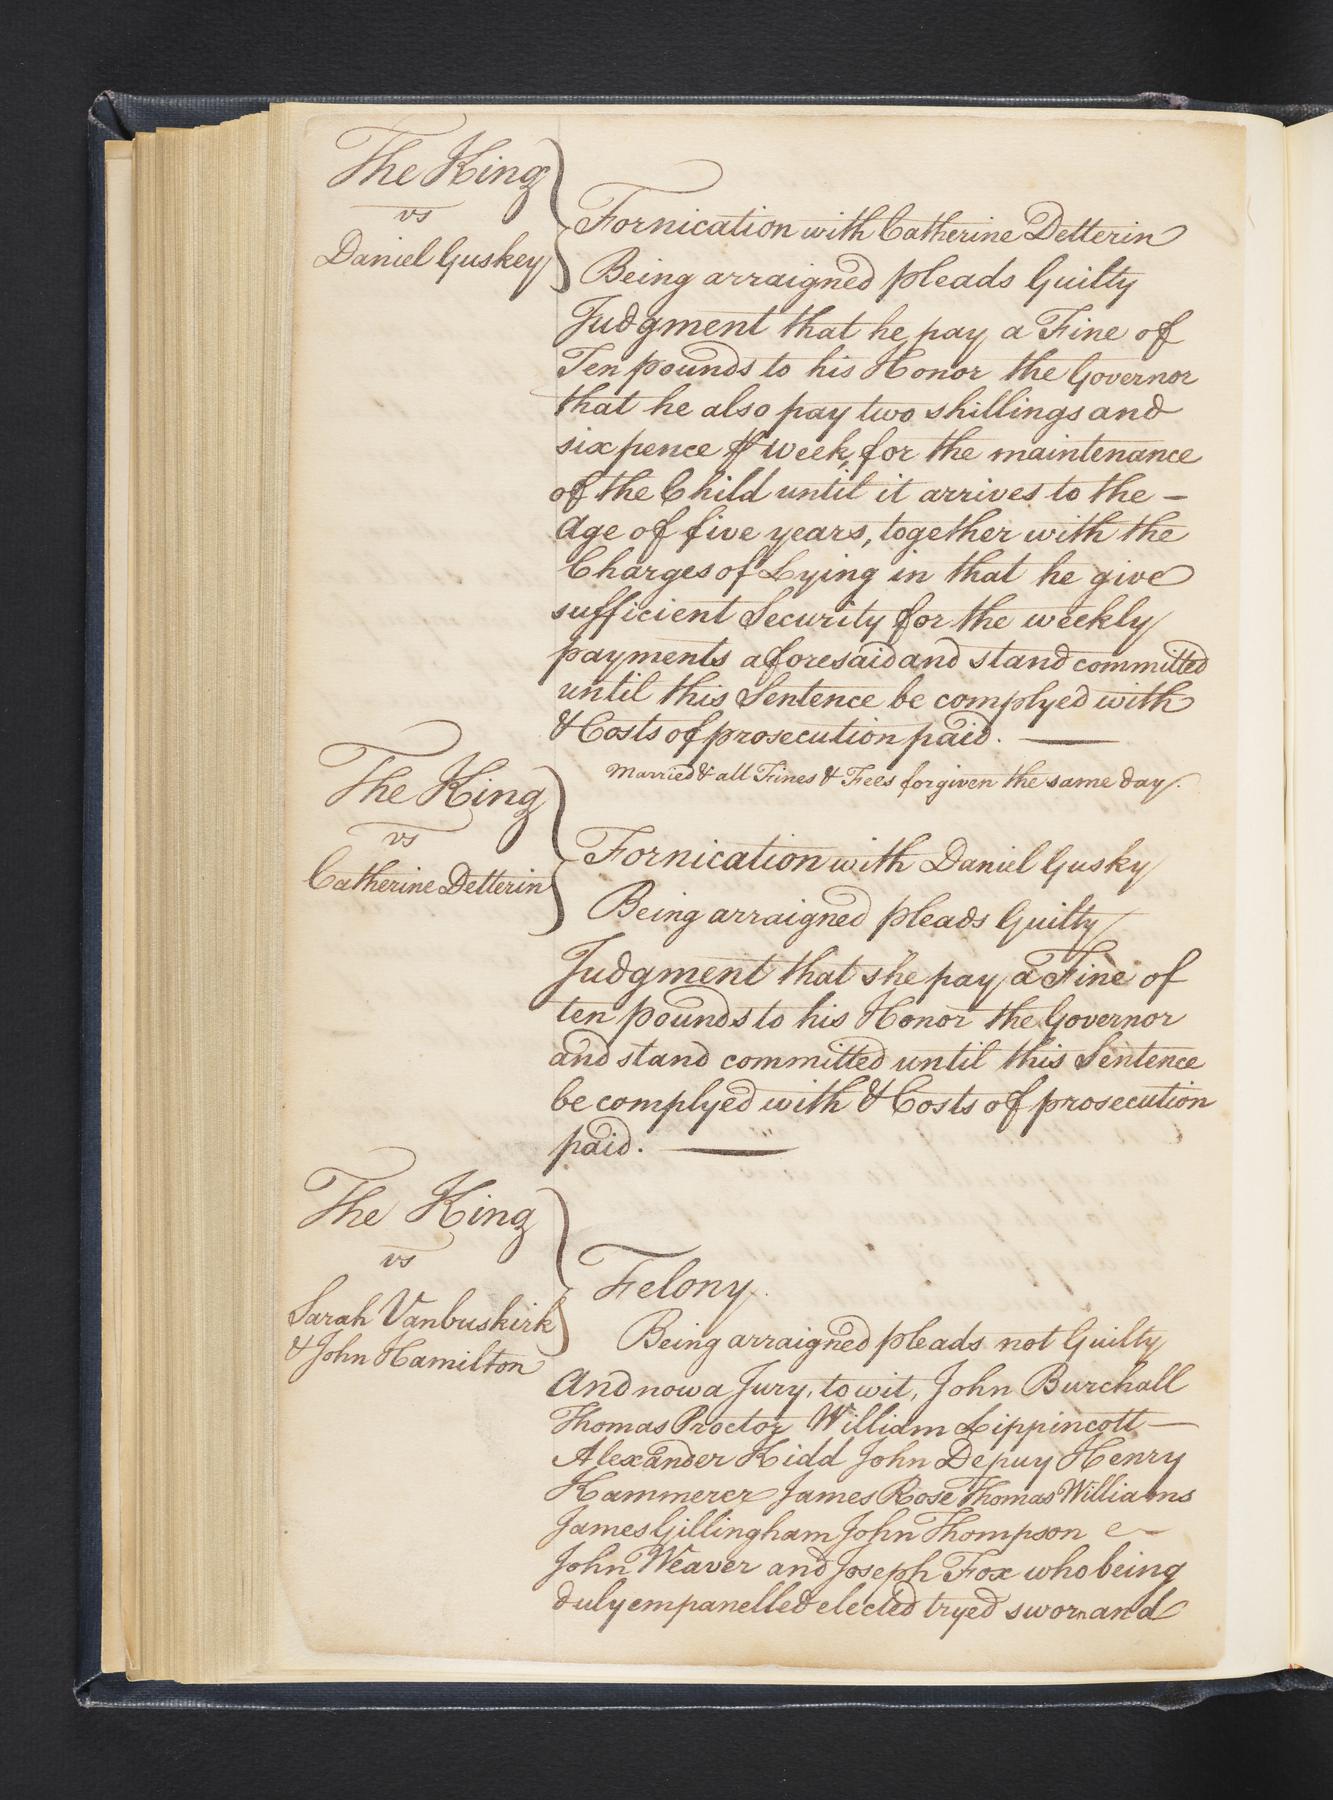 The King
vs
Daniel Guskey
Fornication with Catherine Detterin
Being arraigned pleads Guilty
Judgment that he pay a Fine of
Ten pounds to his Honor the Governor
that he also pay two shillings and
six pence ⅌ week, for the maintenance
of the Child until it arrives to the —
Age of five years, together with the
Charges of Lying in that he give
sufficient Security for the weekly
payments aforesaid and stand committed
until this Sentence be complyed with
& Costs of prosecution paid. —
Married & all Fines & Fees forgiven the same day.
The King
vs
Catherine Detterin
Fornication with Daniel Gusky
Being arraigned pleads Guilty
Judgment that she pay a Fine of
ten pounds to his Honor the Governor
and stand committed until this Sentence
be complyed with & Costs of prosecution
paid. —
The King
vs
Sarah Vanbuskirk
& John Hamilton
Felony.
Being arraigned pleads not Guilty
And now a Jury, to wit, John Burchall
Thomas Proctor William Lippincott —
Alexander Kidd John Depuy Henry
Kammerer James Rose Thomas Williams
James Gillingham John Thompson
John Weaver and Joseph Fox who being
duly empanelled elected tryed sworn and